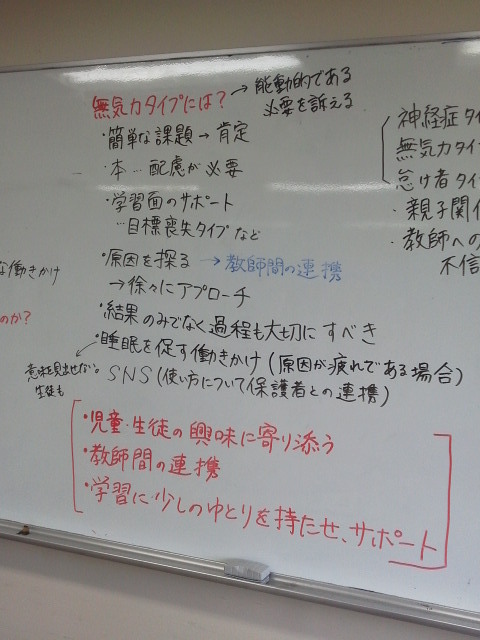 無気力タイプには? → 能動的である
必要を訴える
・簡単な課題 → 肯定
・本…配慮が必要
・学習面のサポート
…目標喪失タイプなど
・原因を探る → 教師間の連携
→徐々にアプローチ
・結果のみでなく過程も大切にすべき
・睡眠を促す働きかけ(原因が疲れである場合)
SNS(使い方について保護者との連携)
・児童・生徒の興味に寄り添う
・教師間の連携
・学習に少しのゆとりを持たせ、サポート
な働きかけ
のか?
意味見出せない。
生徒も
神経症タイ
無気力タイプ
怠け者タイ
・親子関係
・教師への
不信